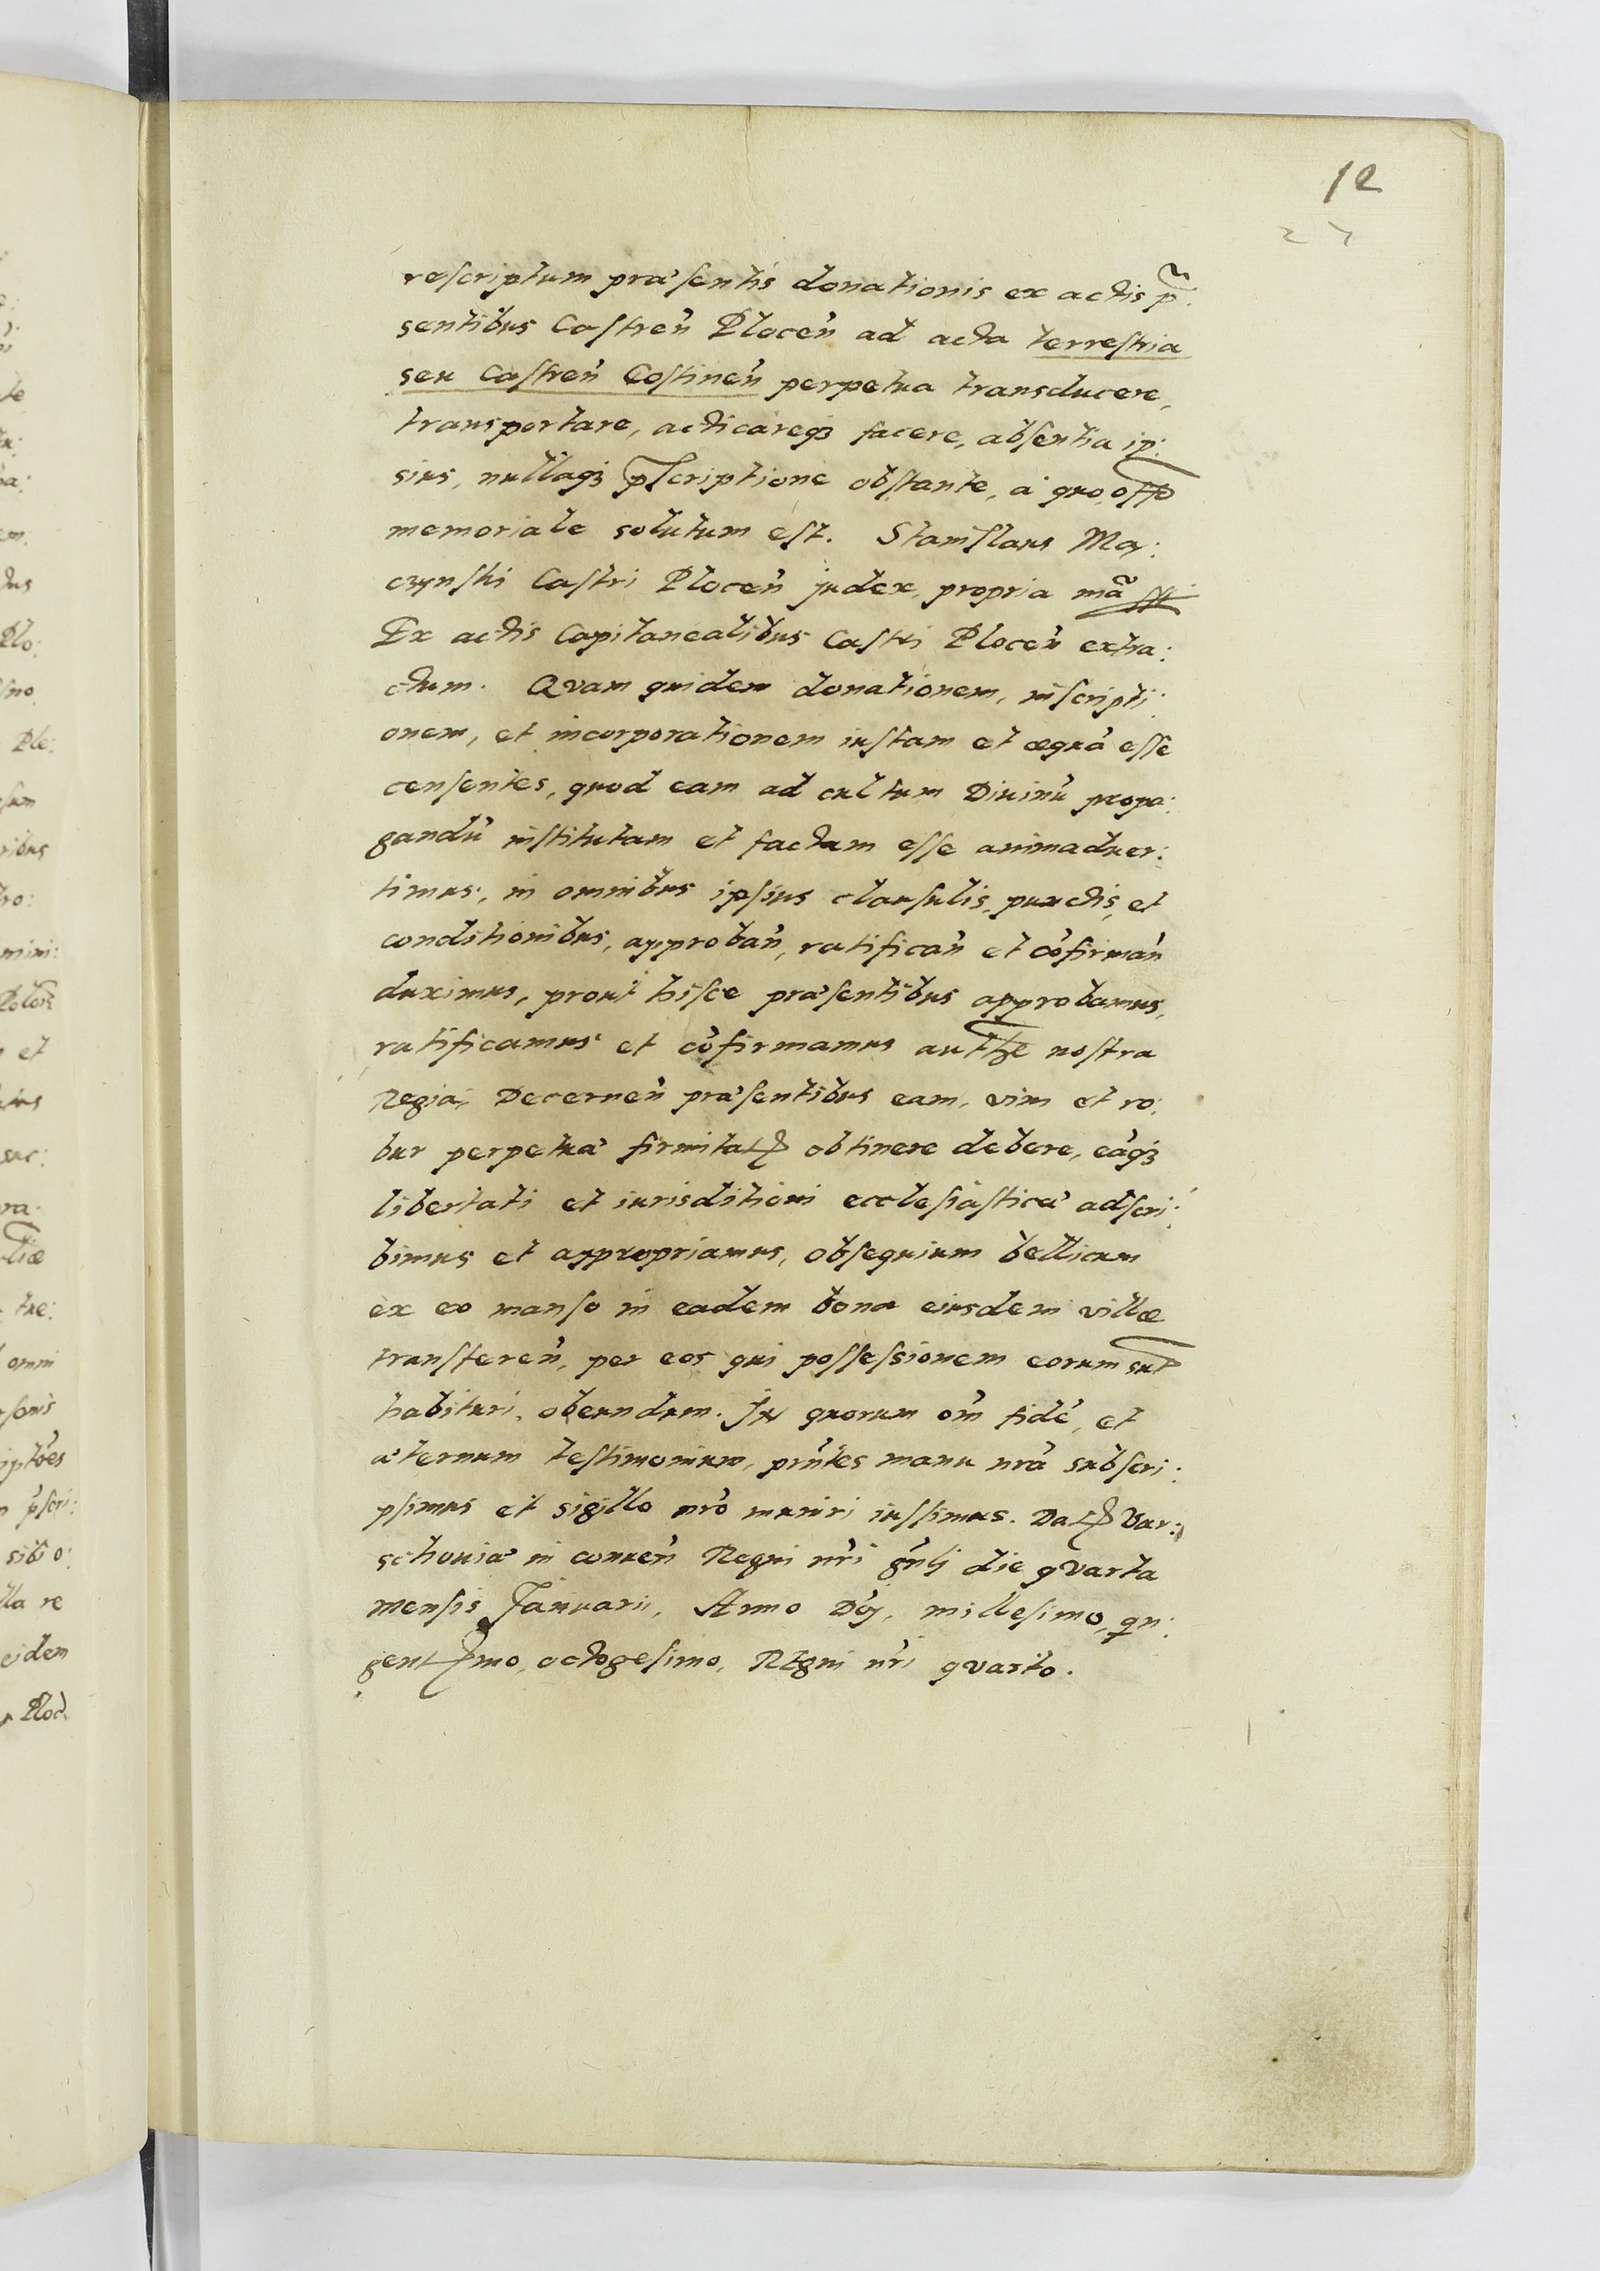 12
27
rescriptum præsentis donationis ex actis p̃:
sentibus Castreñ Ploceñ ad acta terrestria
seu Castreñ Costineñ perpetua transducere,
transportare, acticareqꝫ facere, absentia ip:
sius, nullaqꝫ pscriptione obstante, à quo
memoriale solutum est. Stanislaus Mo:
czynski Castri Ploceñ judex, propria mã
Ex actis Capitanealibus Castri Ploceñ extra:
ctum. Qvam quidem donationem, inscripti:
onem, et incorporationem iustam et æquã esse
censentes, quod eam ad cultum Diuinũ propa:
gandũ institutam et factam esse animaduer:
timus, in omnibus ipsius clausulis, punctis, et
conditionibus, approbañ, ratificañ et cõfirmañ
duximus, prout hisce præsentibus approbamus,
ratificamus et cõfirmamus autthe nostra
Regia, Decerneñ præsentibus eam, vim et ro:
bur perpetuæ firmitatꝭ obtinere debere, eãqꝫ
libertati et iurisditioni ecclesiasticæ adscri:
bimus et appropriamus, obsequium bellicum
ex eo manso in eadem bona eiusdem villæ
transfereñ, per eos qui possessionem eorum sut
habituri, obeundum. In quorum om̃ fidẽ, et
æternum testimonium, pr̃ntes manu nr̃a subscri:
psimus et sigillo nr̃o muniri iussimus. Datꝭ Var:
schouiæ in conueñ Regni nr̃i gñlj die qvarta
mensis Januarii, Anno Dñj, millesimo, qn:
gentꝭmo, octogesimo, REgni nr̃i qvarto.